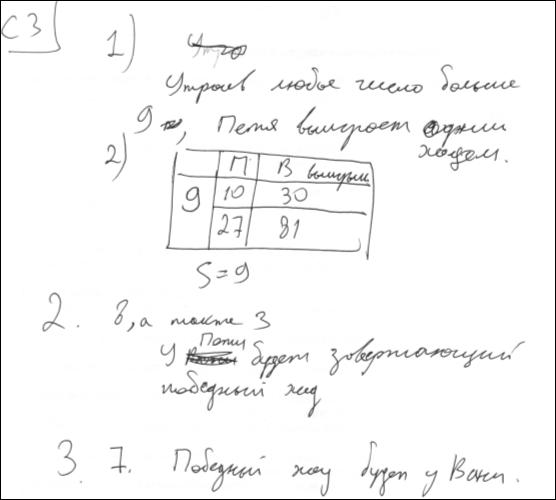 С 3
1)
Утроив любое число больше
9, Петя выиграет одним
ходом.
2)
П В выигрыш
9 10 30
27 81
S=9
2. 8, а также 3
У Пети будет завершающий
победный ход
3. 7. Победный ход будет у Вани.